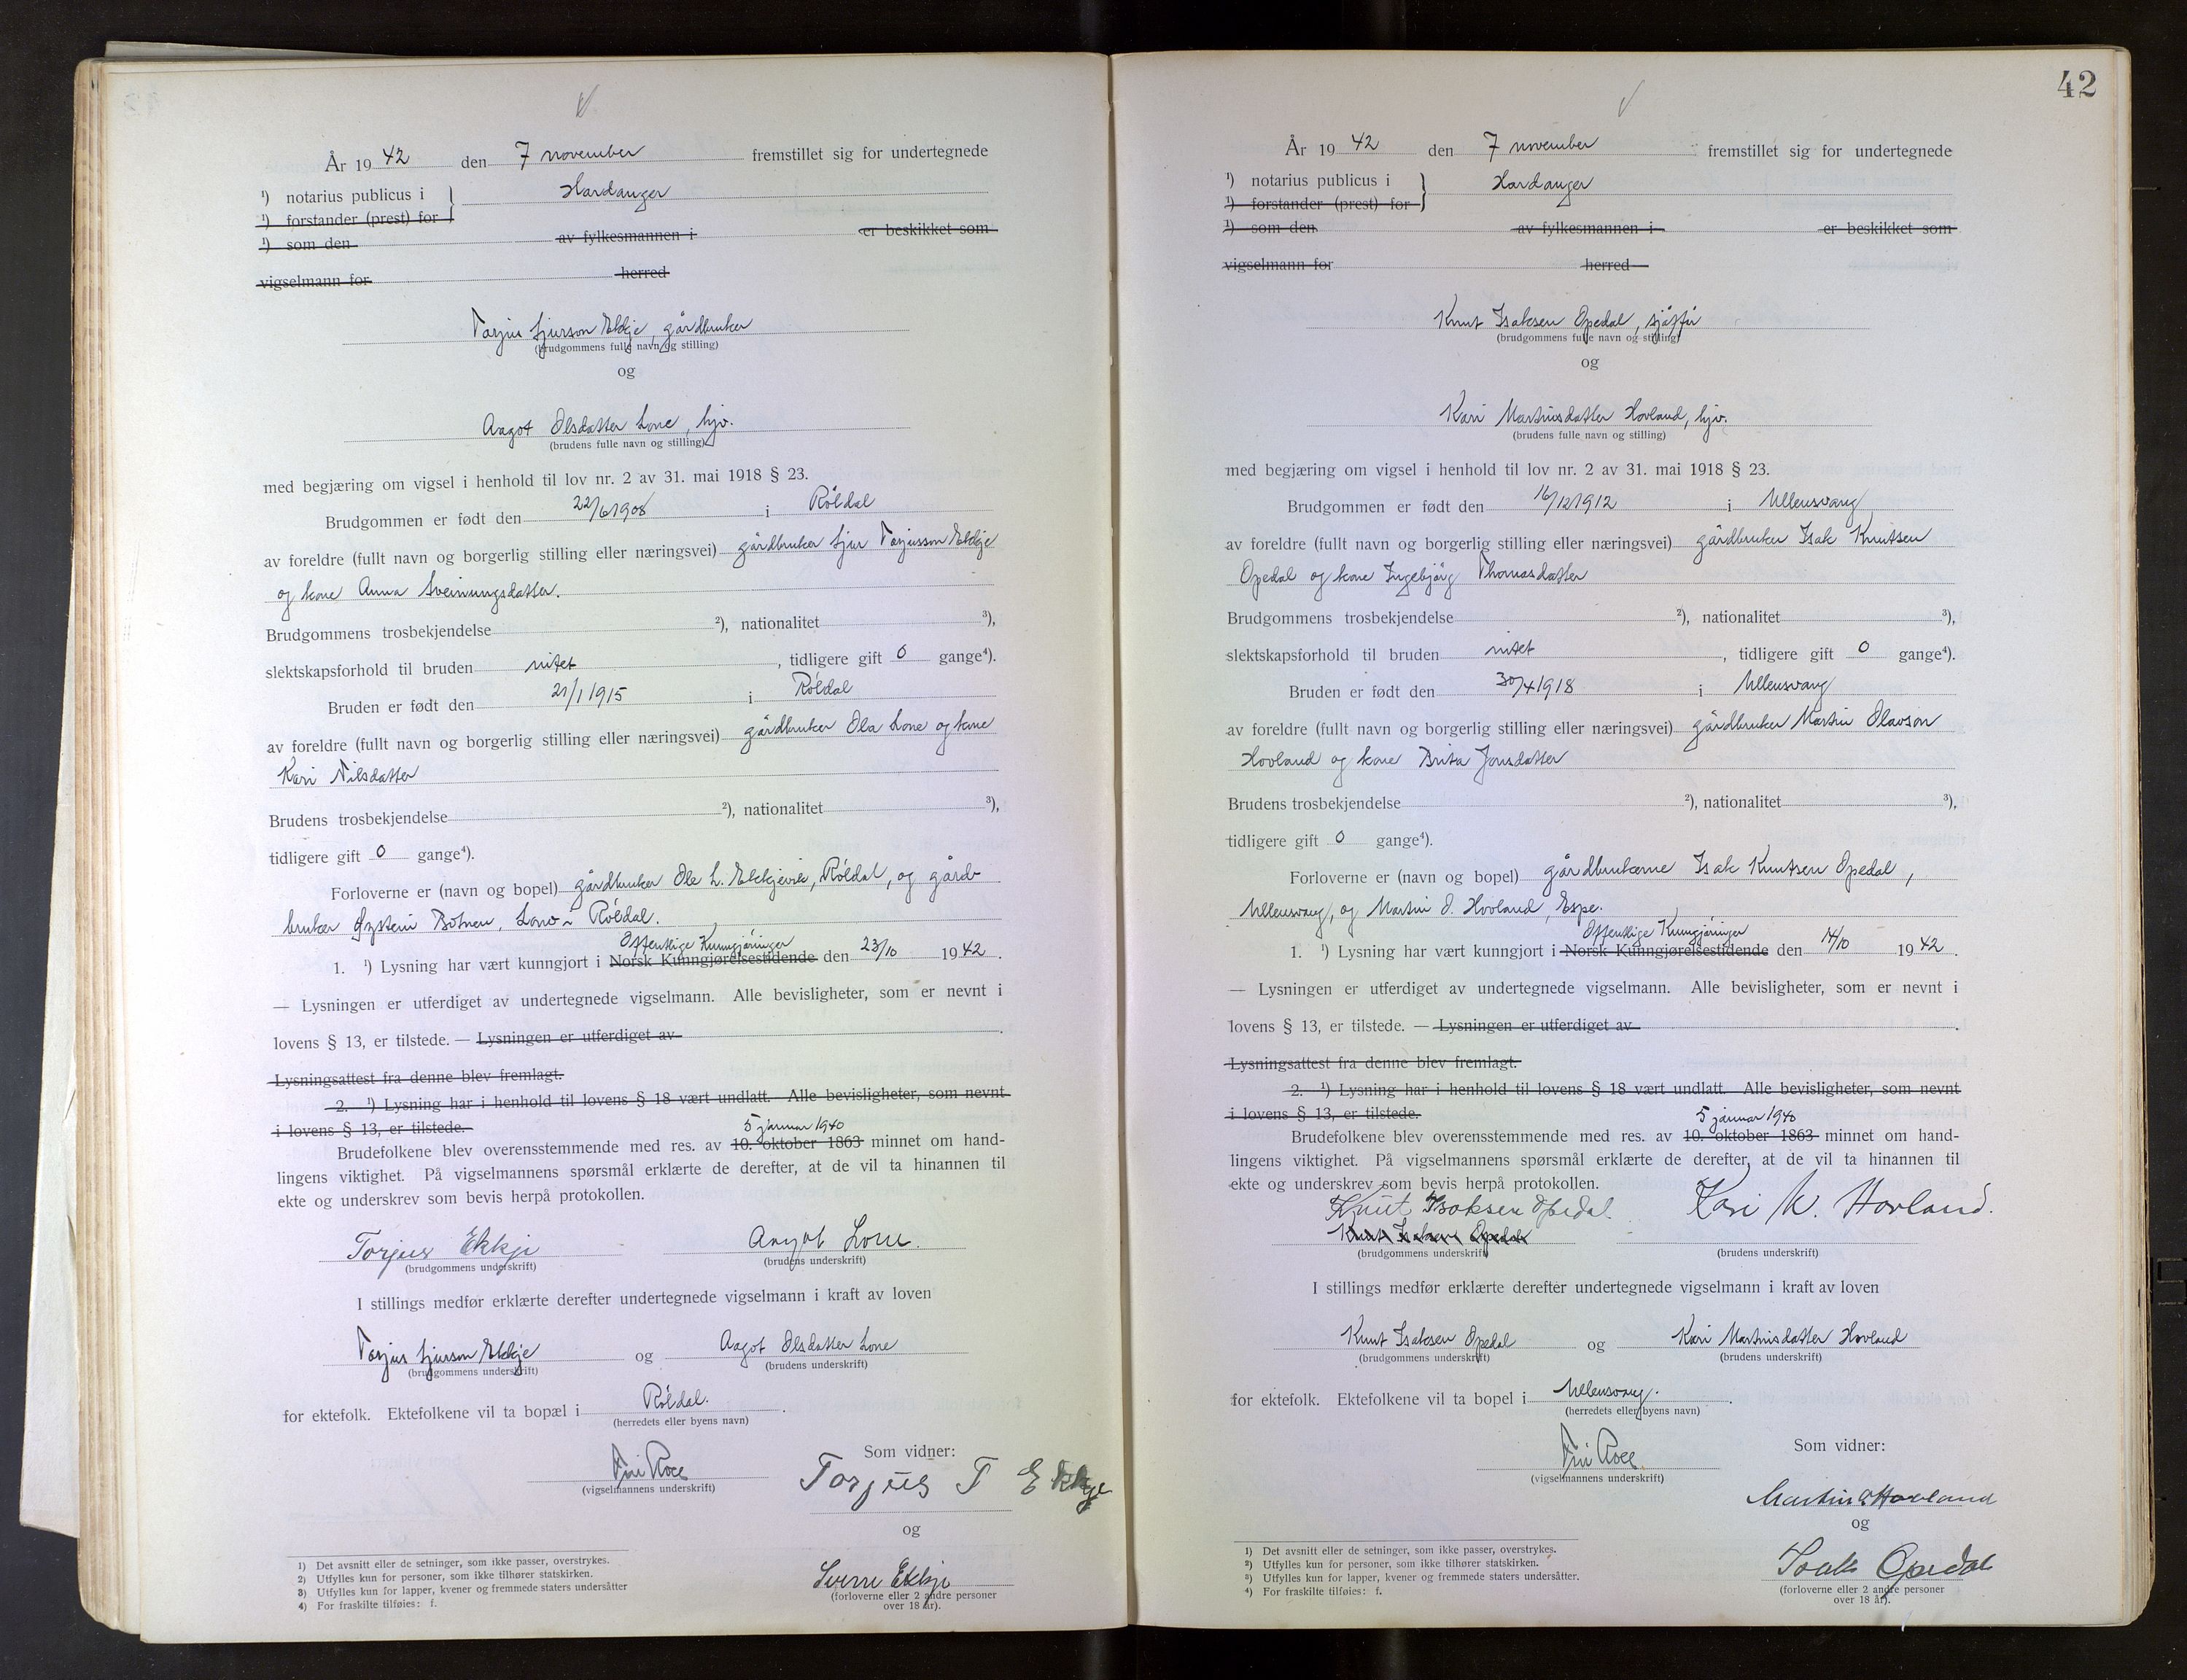 År 19 42 den 7 november fremstillet sig for undertegnede
¹) notarius publicus i } Hardanger
¹) forstander (prest) for
¹) som den av fylkesmannen i er beskikket som
vigselmann for herred
Torjus Sjurson Ekkje, gårdbruker
(brudgommens fulle navn og stilling)
og
Aagot Olsdatter Lone, hjv.
(brudens fulle navn og stilling)
med begjæring om vigsel i henhold til lov nr. 2 av 31. mai 1918 § 23.
Brudgommen er født den 22/6 1908 i Röldal
av foreldre (fullt navn og borgerlig stilling eller næringsvei) gårdbruker Sjur Torjusson Ekkje
og kone Anna Sveinungsdatter.
Brudgommens trosbekjendelse ²), nationalitet ³),
slektskapsforhold til bruden intet , tidligere gift 0 gange⁴).
Bruden er født den 21/1 1915 i Röldal
av foreldre (fullt navn og borgerlig stilling eller næringsvei) gårdbruker Ola Lone og kone
Kari Nilsdatter
Brudens trosbekjendelse ²), nationalitet ³),
tidligere gift 0 gange⁴).
Forloverne er (navn og bopel) gårdbruker Ole L. Ekkjevik, Röldal, og gård-
bruker Øystein Botnen, Lono i Röldal.
Offentlige Kunngjöringer
1. ¹) Lysning har vært kunngjort i Norsk Kunngjørelsestidende den 23/10 1942.
— Lysningen er utferdiget av undertegnede vigselmann. Alle bevisligheter, som er nevnt i
lovens § 13, er tilstede. — Lysningen er utferdiget av .
Lysningsattest fra denne blev fremlagt.
2. ¹) Lysning har i henhold til lovens § 18 vært undlatt. Alle bevisligheter, som nevnt
i lovens § 13, er tilstede.
5 januar 1940
Brudefolkene blev overensstemmende med res. av 10. oktober 1863 minnet om hand-
lingens viktighet. På vigselmannens spørsmål erklærte de derefter, at de vil ta hinannen til
ekte og underskrev som bevis herpå protokollen.
Torjus Ekkje Aagot Lone.
(brudgommens underskrift) (brudens underskrift)
I stillings medfør erklærte derefter undertegnede vigselmann i kraft av loven
Torjus Sjurson Ekkje og Aagot Olsdatter Lone
(brudgommens underskrift) (brudens underskrift)
for ektefolk. Ektefolkene vil ta bopæl i Röldal.
(herredets eller byens navn)
Som vidner:
(vigselmannens underskrift)
Torjus T Ekkje
og
Sverre Ekkje
(forloverne eller 2 andre personer
over 18 år).
1) Det avsnitt eller de setninger, som ikke passer, overstrykes.
2) Utfylles kun for personer, som ikke tilhører statskirken.
3) Utfylles kun for lapper, kvener og fremmede staters undersåtter
4) For fraskilte tilføies: f.
42
År 19 42 den 7 november fremstillet sig for undertegnede
¹) notarius publicus i } Hardanger
¹) forstander (prest) for
¹) som den av fylkesmannen i er beskikket som
vigselmann for herred
Knut Isaksen Opedal, sjåför
(brudgommens fulle navn og stilling)
og
Kari Martinsdatter Hovland, hjv.
(brudens fulle navn og stilling)
med begjæring om vigsel i henhold til lov nr. 2 av 31. mai 1918 § 23.
Brudgommen er født den 16/12 1912 i Ullensvang
av foreldre (fullt navn og borgerlig stilling eller næringsvei) gårdbruker Isak Knutsen
Opedal og kone Ingebjörg Thomasdatter
Brudgommens trosbekjendelse ²), nationalitet ³),
slektskapsforhold til bruden intet , tidligere gift 0 gange⁴).
Bruden er født den 30/4 1918 i Ullensvang
av foreldre (fullt navn og borgerlig stilling eller næringsvei) gårdbruker Martin Olavson
Hovland og kone Brita Jonsdatter
Brudens trosbekjendelse ²), nationalitet ³),
tidligere gift 0 gange⁴).
Forloverne er (navn og bopel) gårdbrukerne Isak Knutsen Opedal,
Ullensvang, og Martin O. Hovland, Espe.
Offentlige Kungjöringer
1. ¹) Lysning har vært kunngjort i Norsk Kunngjørelsestidende den 14/10 1942.
— Lysningen er utferdiget av undertegnede vigselmann. Alle bevisligheter, som er nevnt i
lovens § 13, er tilstede. — Lysningen er utferdiget av .
Lysningsattest fra denne blev fremlagt.
2. ¹) Lysning har i henhold til lovens § 18 vært undlatt. Alle bevisligheter, som nevnt
i lovens § 13, er tilstede.
5 januar 1940
Brudefolkene blev overensstemmende med res. av 10. oktober 1863 minnet om hand-
lingens viktighet. På vigselmannens spørsmål erklærte de derefter, at de vil ta hinannen til
ekte og underskrev som bevis herpå protokollen.
Knut Isaksen Opedal. Kari M. Hovland.
Knut Isaksen Opedal
(brudgommens underskrift) (brudens underskrift)
I stillings medfør erklærte derefter undertegnede vigselmann i kraft av loven
Knut Isaksen Opedal og Kari Martinsdatter Hovland
(brudgommens underskrift) (brudens underskrift)
for ektefolk. Ektefolkene vil ta bopel i Ullensvang.
(herredets eller byens navn)
Som vidner:
(vigselmannens underskrift)
Martin O Hovland
og
Isak Opedal
(forloverne eller 2 andre personer
over 18 år).
1) Det avsnitt eller de setninger, som ikke passer, overstrykes.
2) Utfylles kun for personer, som ikke tilhører statskirken.
3) Utfylles kun for lapper, kvener og fremmede staters undersåtter.
4) For fraskilte tilføies: f.